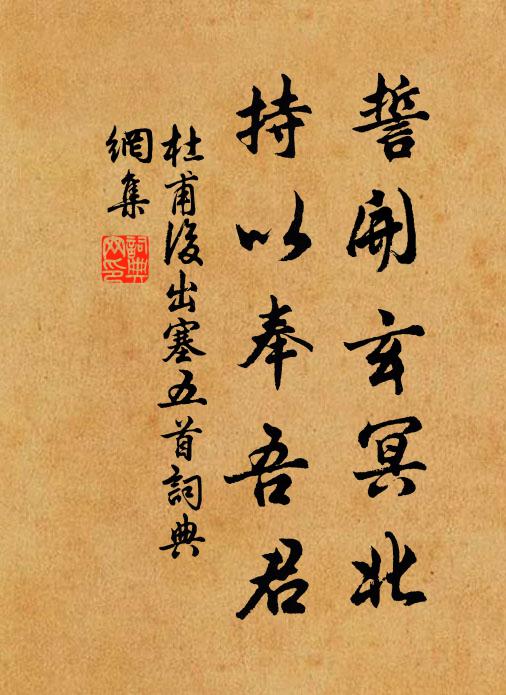 誓開玄冥北
持以奉吾君
杜甫後出塞五首詞典
網集
詞典
网印